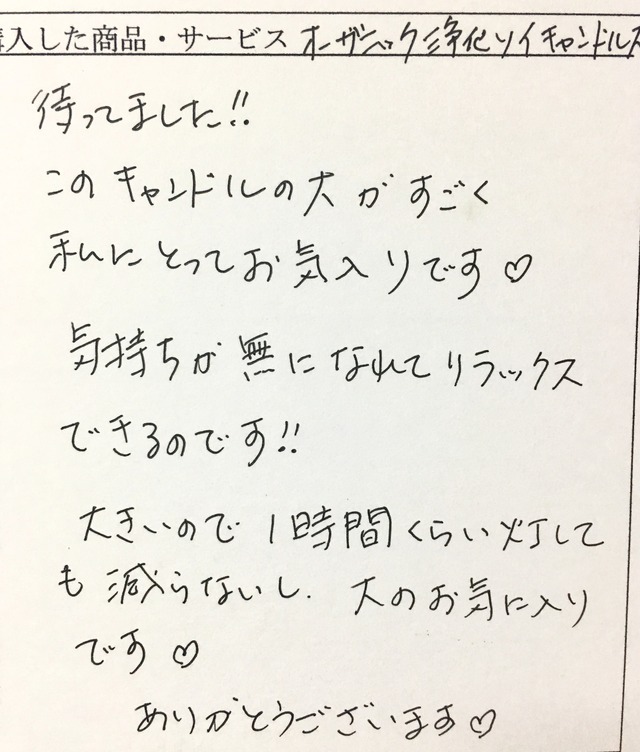 購入した商品・サービス オーガニック浄化ソイキャンドル大
待ってました!!
このキャンドルの大がすごく
私にとってお気入りです♡
気持ちが無になれてリラックス
できるのです!!
大きいので1時間くらい灯して
も減らないし. 大のお気に入り
です♡
ありがとうございます♡